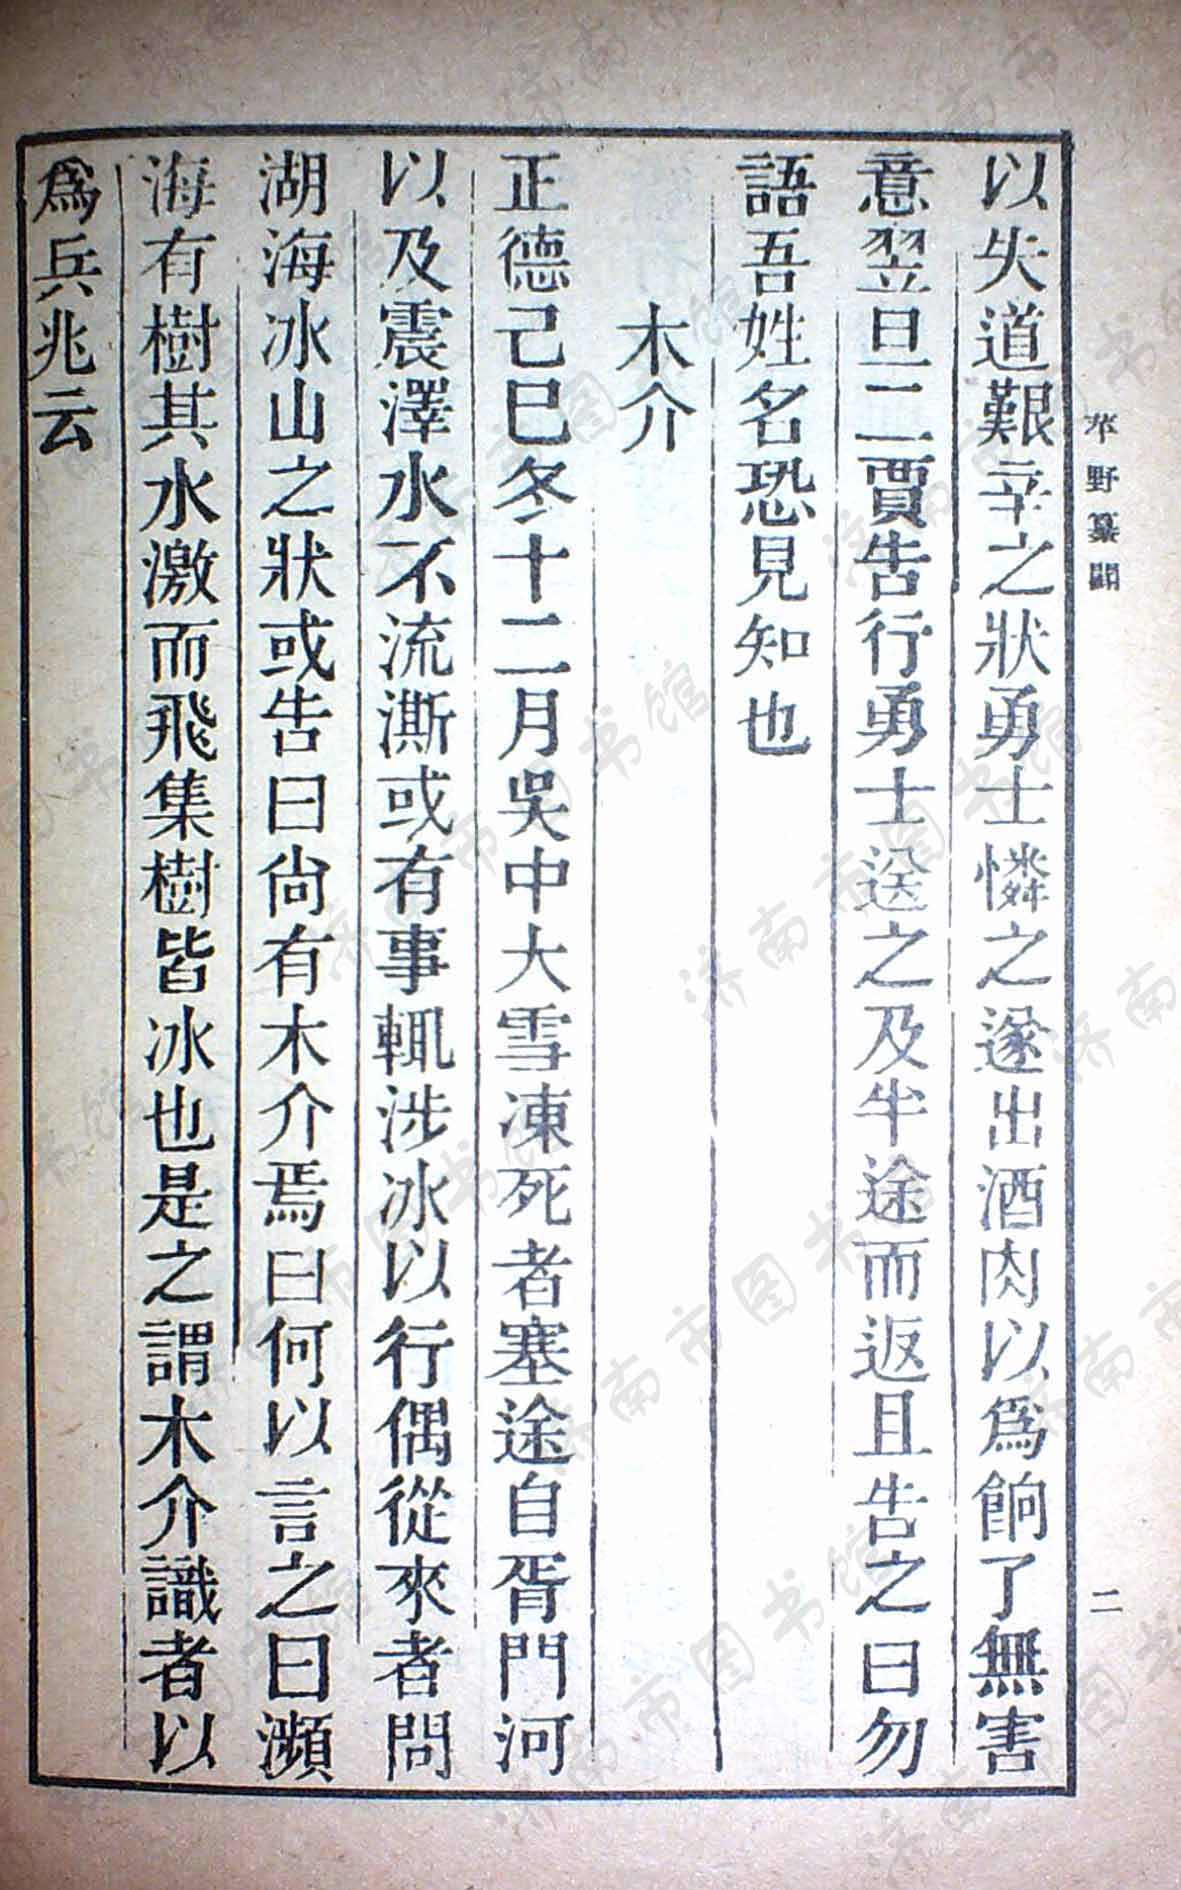 以失道艱辛之狀勇士憐之遂出酒肉以爲餉了無害
意翌旦二賈告行勇士送之及半途而返且告之曰勿
語吾姓名恐見知也
木介
正德己巳冬十二月吳中大雪凍死者塞途自胥門河
以及震澤水不流澌或有事輒涉冰以行偶從來者問
湖海冰山之狀或告曰尙有木介焉曰何以言之曰瀕
海有樹其水激而飛集樹皆冰也是之謂木介識者以
爲兵兆云
苹野纂聞
二
济南市图书馆